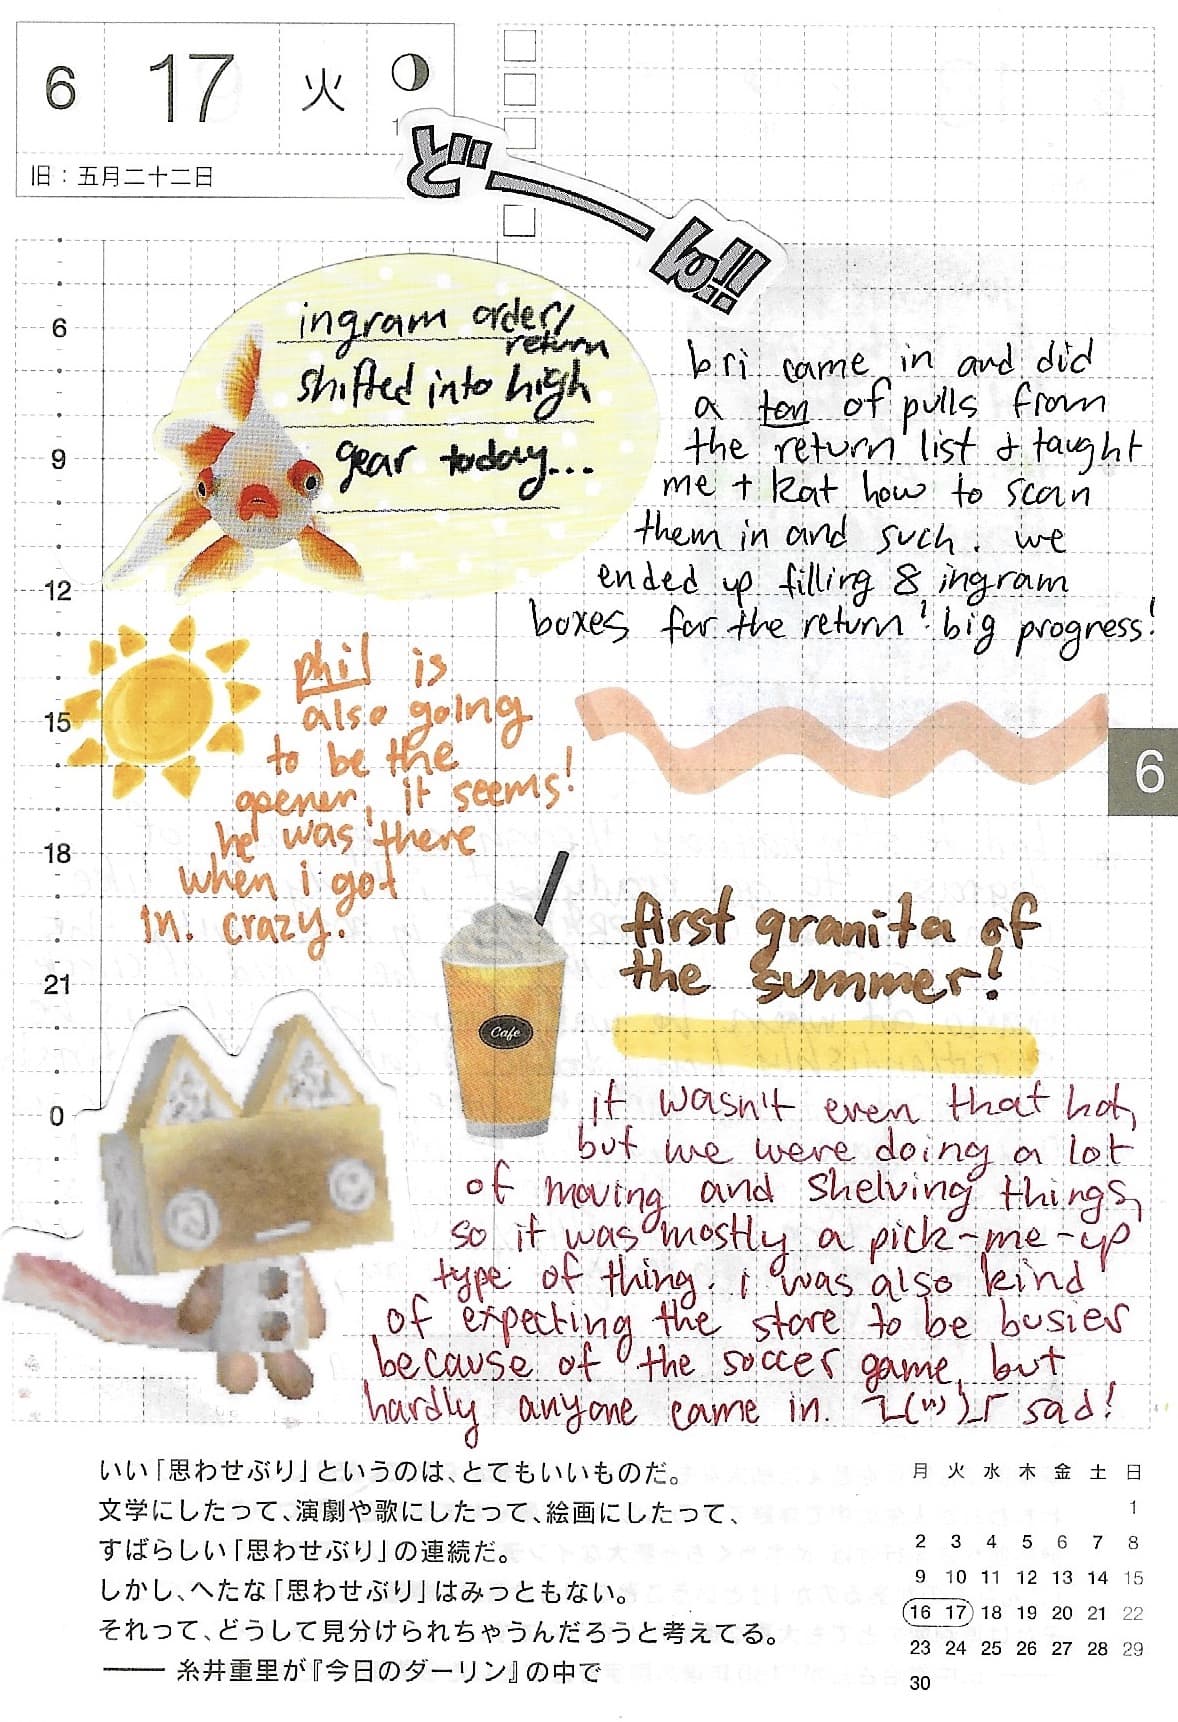 6 17 火
旧：五月二十二日
どーん!!
ingram order/
return
shifted into high
gear today...
bri came in and did
a ton of pulls from
the return list & taught
me + kat how to scan
them in and such. we
ended up filling 8 ingram
boxes for the return! big progress!
6
9
12
15
18
21
0
phil is
also going
to be the
opener, it seems!
he was there
when i got
in. crazy!
6
first granita of
the summer!
Cafe
it wasn't even that hot,
but we were doing a lot
of moving and shelving things,
so it was mostly a pick-me-up
type of thing. i was also kind
of expecting the store to be busier
because of the soccer game, but
hardly anyone came in. ㄟ(")ㄏ sad!
いい「思わせぶり」というのは、とてもいいものだ。
文学にしたって、演劇や歌にしたって、絵画にしたって、
すばらしい「思わせぶり」の連続だ。
しかし、へたな「思わせぶり」はみっともない。
それって、どうして見分けられちゃうんだろうと考えてる。
—— 糸井重里が『今日のダーリン』の中で
月 火 水 木 金 土 日
1
2 3 4 5 6 7 8
9 10 11 12 13 14 15
16 17 18 19 20 21 22
23 24 25 26 27 28 29
30